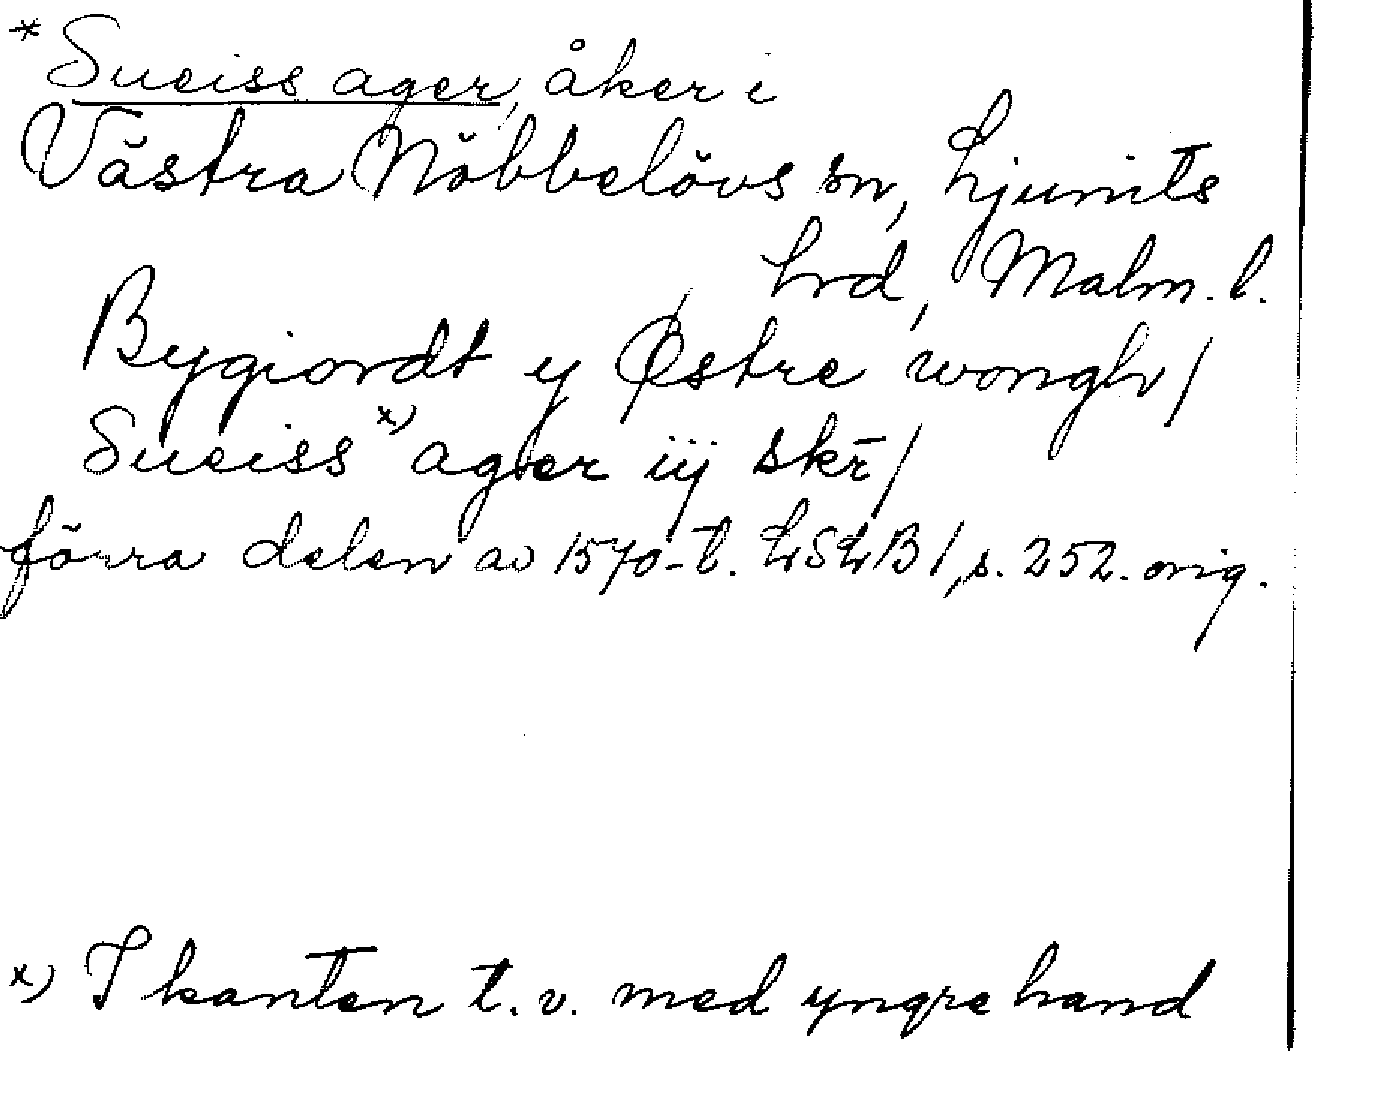 *Sueiss ager, åker i
Västra Nöbbelövs sn, Ljunits
hrd, Malm. l.
Bygiordt y Østre wongh/
Sueiss x) ager iij skr̄/
förra delen av 1570-t. LSLB 1, s. 252. orig.
x) I kanten t. v. med yngre hand